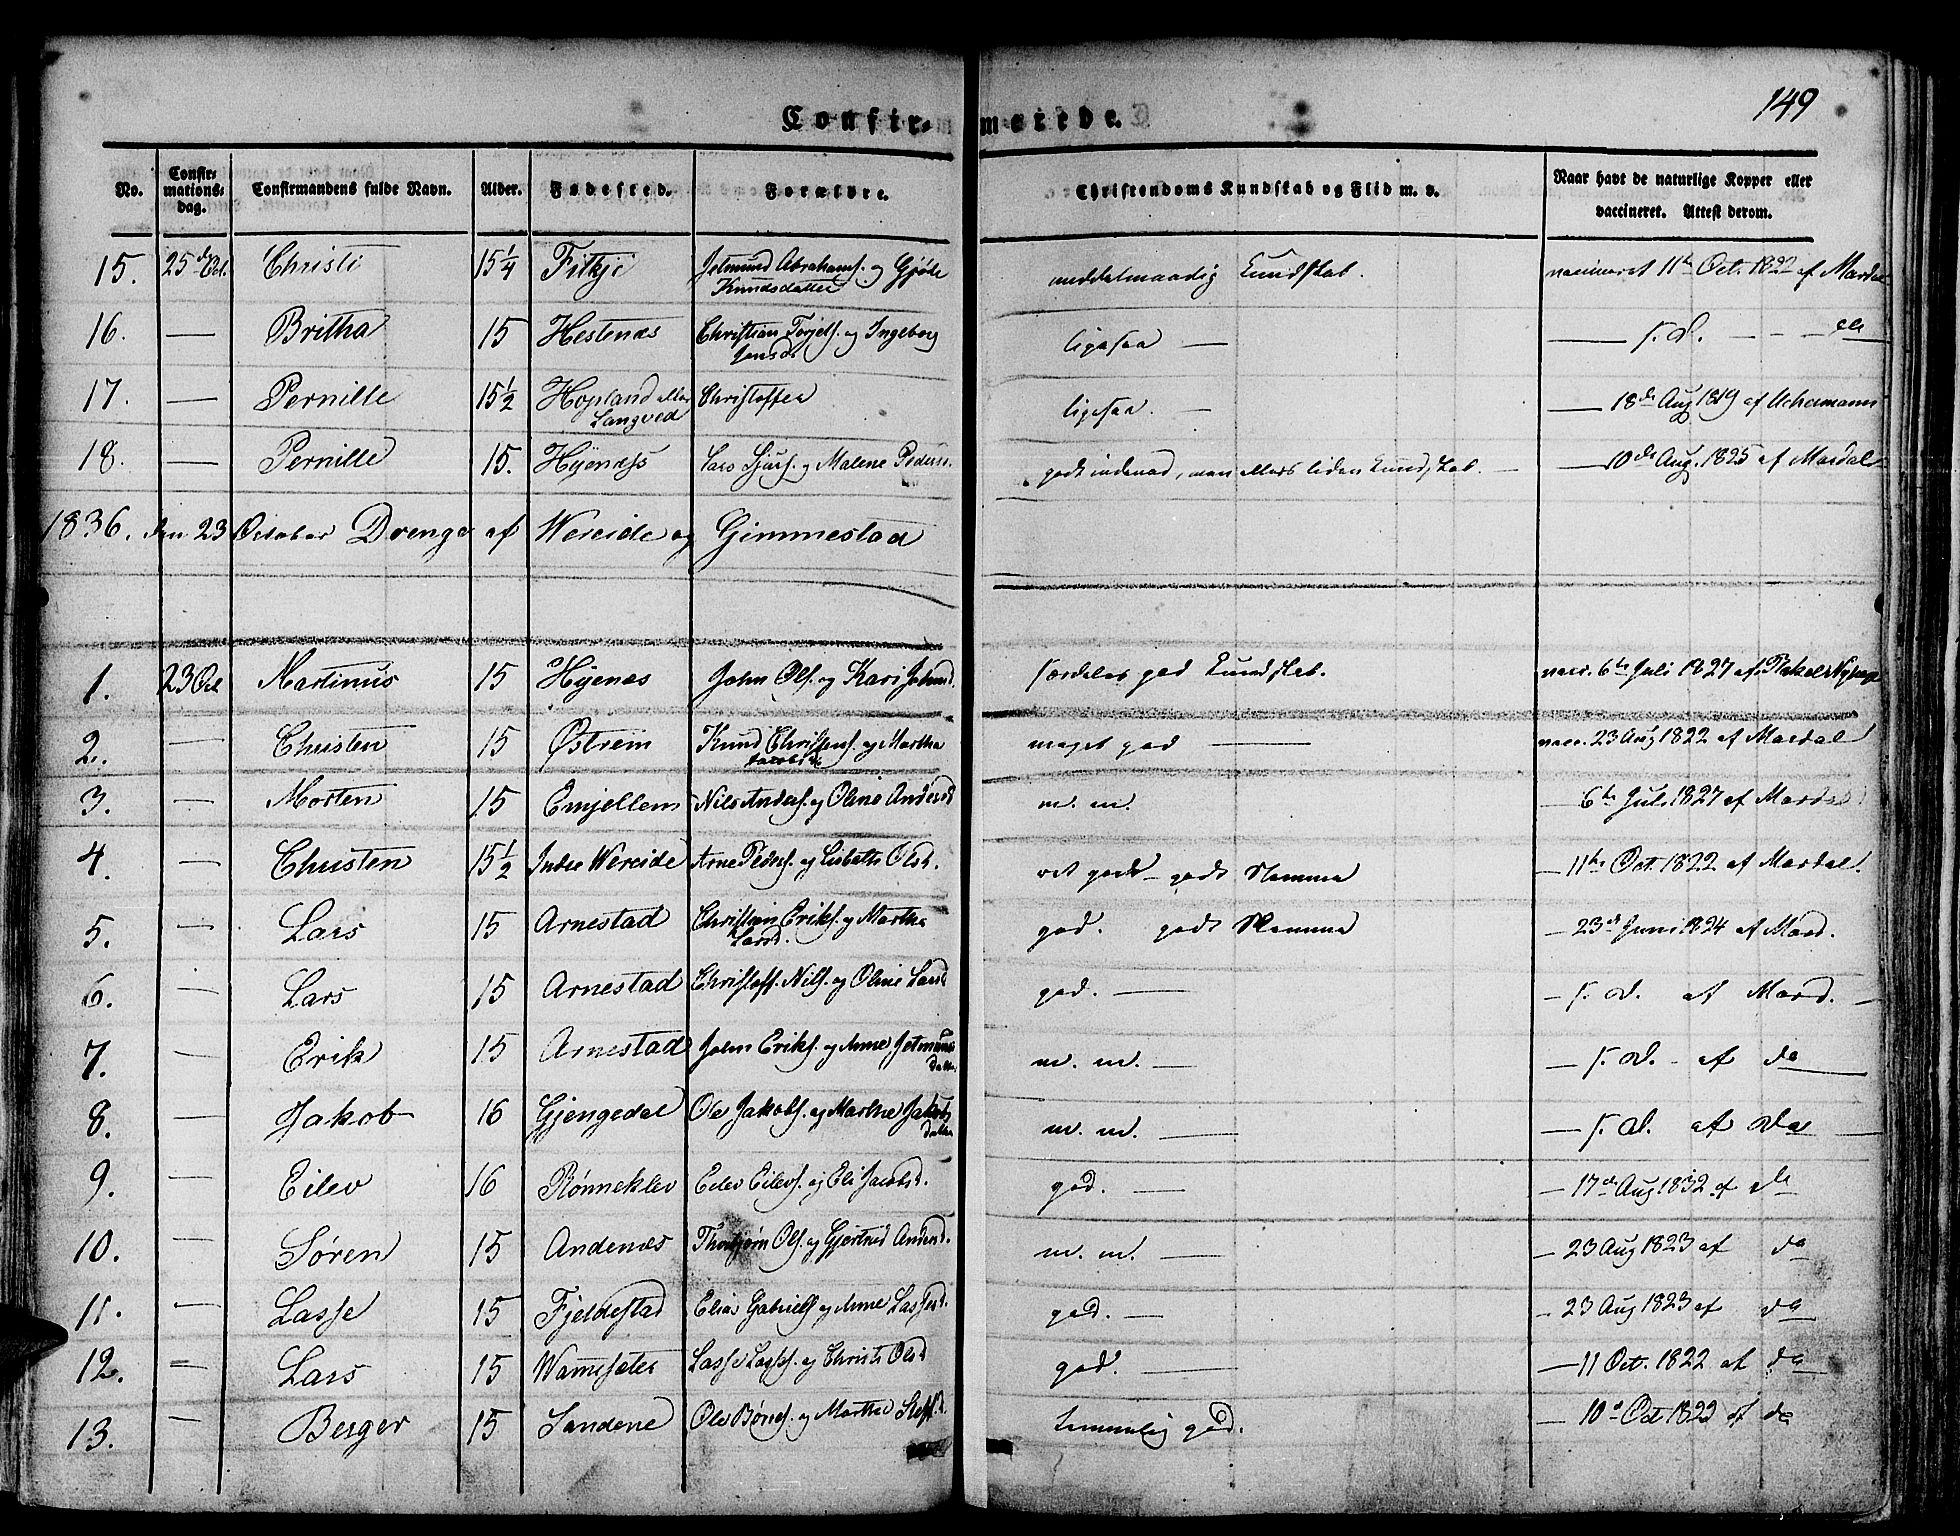 149
Confirmerede.
No. Confirmations-dag. Confirmandens fulde Navn. Alder. Fødested. Forældre. Christendoms Kundskab og Flid m. v. Naar havt de naturlige Kopper eller vaccineret. Attest derom.
15. 25de Oct. Christi 15 1/4 Fitkje Jetmund Abrahams. og Gjøle Knudsdatter middelmaadig Kundskab. vaccineret 11te Oct. 1822 af Mardal
16. — Britha 15 Hestenæs Christian Torjels. og Ingeborg Jensd. ligesaa — — s. d. — — do
17. — Pernille 15 1/2 Hopland eller Langved Christoffer ligesaa. — — 18de Aug 1819 af
18. — Pernille 15. Hyenæs Lars Sjurs. og Malene Peders. godt indenad, men ellers liden Kundskab. — — 10de Aug. 1825 af Mardal
1836. den 23 October Drenge af Wereide og Gimmestad
1. 23 Oct Martinus 15 Hyenæs John Ols. og Kari Johnsd. særdeles god Kundskab. vacc. 6te Juli 1827 af
2. — Christen 15 Østrem Knud Christens. og Martha Jacobsd. meget god — vacc. 23 Aug 1822 af Mardal
3. — Morten 15 Emjellem Nils Anders. og Oline Andersd m. m. — 6te Juli 1827 af Mardal
4. — Christen 15 1/2 Indre Wereide Arne Peders. og Lisbeth Olsd. ret godt — godt Nemme — 11te Oct. 1822 af Mardal
5. — Lars 15 Arnestad Christian Eriks. og Martha Larsd. god. godt Nemme — 23de Juni 1824 af Mard.
6. — Lars 15 Arnestad Christoff. Nils. og Oline Larsd god. — — s. d. af Mard. —
7. — Erik 15 Arnestad John Eriks. og Anne Jetmunds datter m. m. — — s. d. - af do
8. — Jakob 16 Gjengedal Ole Jakobs. og Marthe Jakobs datter m. m. — — s. d. af do —
9. — Eilev 16 Rønneklev Eilev Eilevs. og Eli Jacobsd. god. — — 17de Aug 1832 af do
10. — Søren 15 Andenæs Thorbjørn Ols. og Gjertrud Andersd. m. m. — — 23 Aug 1823 af do
11. — Lasse 15 Fjeldestad Elias Gabriels og Anne Lassesd. god. — — 23 Aug 1823 af do
12. — Lars 15 Wamesæter Lasse Lasses. og Christi Olsd god. — — 11 Oct. 1822 af do
13. — Berger 15 Sandene Ole Bønes. og Marthe Steff.d. temmelig god. — 10de Oct 1823 af do